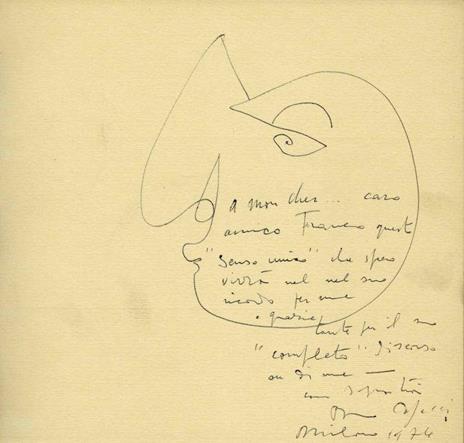 a mon cher... caro
amico Franco questo
"senso unico" che spero
vivrà nel nel suo
ricordo per me
e grazie
tante per il suo
"completo" discorso
su di me —
con simpatia
Milano 1974